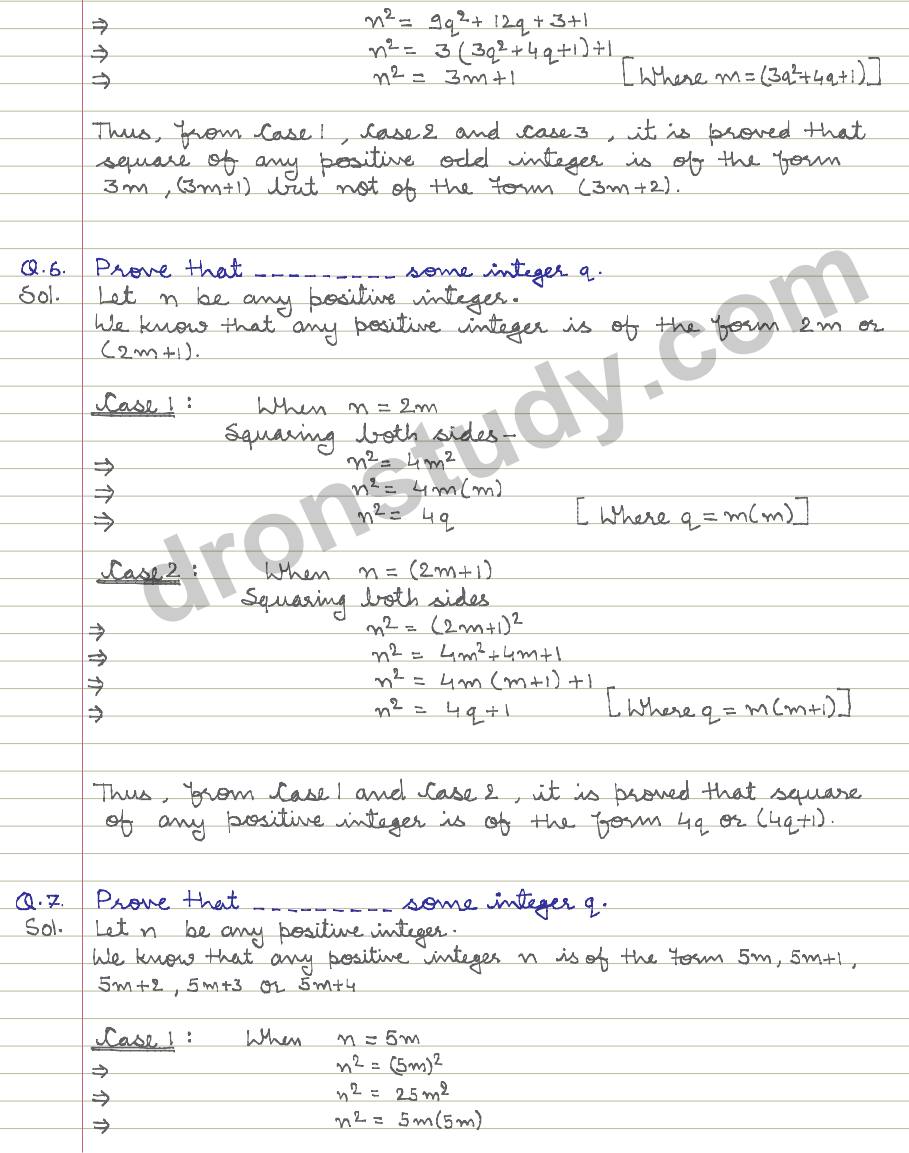 ⇒ n² = 9q² + 12q + 3 + 1
⇒ n² = 3(3q² + 4q + 1) + 1
⇒ n² = 3m + 1 [Where m = (3q² + 4q + 1)]
Thus, from Case 1, Case 2 and Case 3, it is proved that
square of any positive odd integer is of the form
3m, (3m+1) but not of the form (3m+2).
Q.6. Prove that _ _ _ _ _ _ _ _ _ some integer q.
Sol. Let n be any positive integer.
We know that any positive integer is of the form 2m or
(2m+1).
Case 1: When n = 2m
Squaring both sides-
⇒ n² = 4m²
⇒ n² = 4m(m)
⇒ n² = 4q [Where q = m(m)]
Case 2: When n = (2m+1)
Squaring both sides
⇒ n² = (2m+1)²
⇒ n² = 4m² + 4m + 1
⇒ n² = 4m(m+1) + 1
⇒ n² = 4q + 1 [Where q = m(m+1)]
Thus, from Case 1 and Case 2, it is proved that square
of any positive integer is of the form 4q or (4q+1).
Q.7. Prove that _ _ _ _ _ _ _ _ _ some integer q.
Sol. Let n be any positive integer.
We know that any positive integer n is of the form 5m, 5m+1,
5m+2, 5m+3 or 5m+4
Case 1: When n = 5m
⇒ n² = (5m)²
⇒ n² = 25m²
⇒ n² = 5m(5m)
dronstudy.com